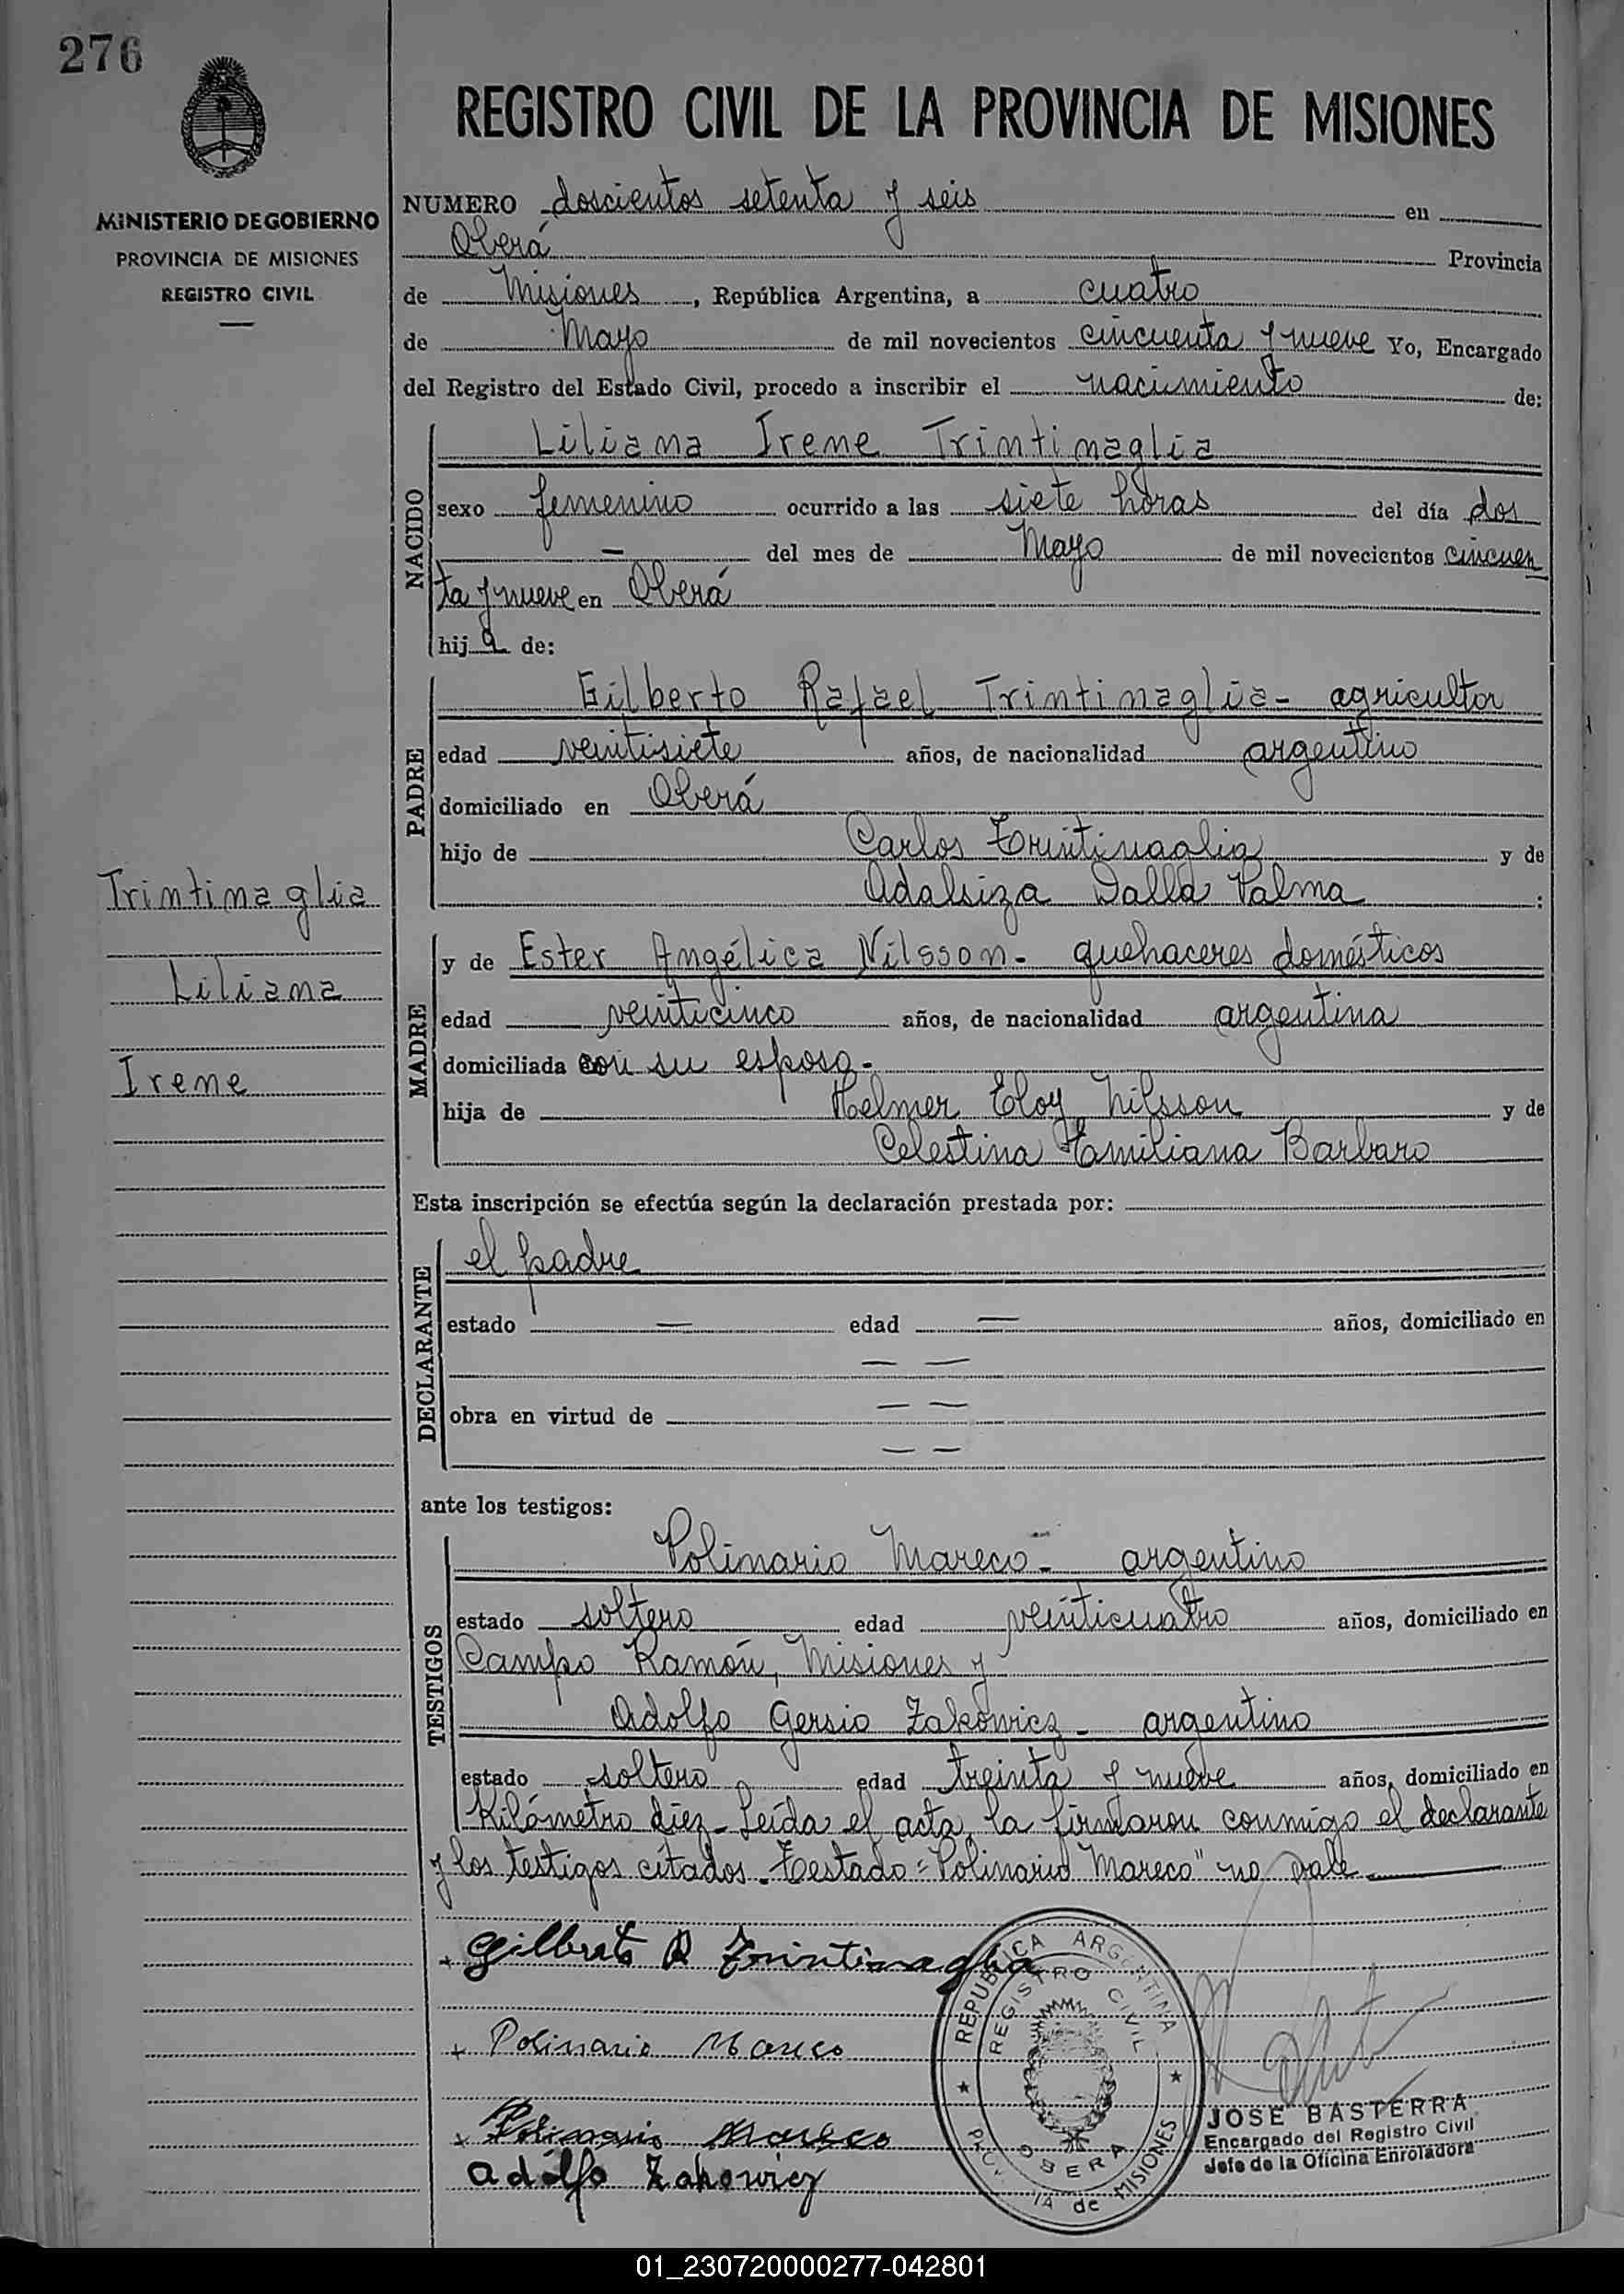 276
MINISTERIO DE GOBIERNO
PROVINCIA DE MISIONES
REGISTRO CIVIL
Trintinaglia
Liliana
Irene
REGISTRO CIVIL DE LA PROVINCIA DE MISIONES
NUMERO doscientos setenta y seis en
Oberá Provincia
de Misiones, República Argentina, a cuatro
de Mayo de mil novecientos cincuenta y nueve Yo, Encargado
del Registro del Estado Civil, procedo a inscribir el nacimiento de:
NACIDO
Liliana Irene Trintinaglia
sexo femenino ocurrido a las siete horas del día dos
— del mes de Mayo de mil novecientos cincuen
ta y nueve en Oberá
hija de:
PADRE
Gilberto Rafael Trintinaglia - agricultor
edad veintisiete años, de nacionalidad argentino
domiciliado en Oberá
hijo de Carlos Trintinaglia y de
Adalsiza Dalla Palma :
MADRE
y de Ester Angélica Nilsson - quehaceres domésticos
edad veinticinco años, de nacionalidad argentina
domiciliada con su esposo -
hija de Helmer Eloy Nilsson y de
Celestina Emiliana Barbaro
Esta inscripción se efectúa según la declaración prestada por:
DECLARANTE
el padre
estado — edad — años, domiciliado en
— —
obra en virtud de — —
— —
ante los testigos:
TESTIGOS
Polinario Mareco - argentino
estado soltero edad veinticuatro años, domiciliado en
Campo Ramón, Misiones y
Adolfo Gersio Zakowicz - argentino
estado soltero edad treinta y nueve años, domiciliado en
Kilómetro diez - Leída el acta, la firmaron conmigo el declarante
y los testigos citados. Testado: "Polinario Mareco" no vale
+ Gilberto R Trintinaglia
+ Polinario Mareco
+ Polinario Mareco
Adolfo Zakowicz
REPUBLICA ARGENTINA
REGISTRO CIVIL
OBERA
PROVINCIA de MISIONES
JOSE BASTERRA
Encargado del Registro Civil
Jefe de la Oficina Enroladora
01_230720000277-042801